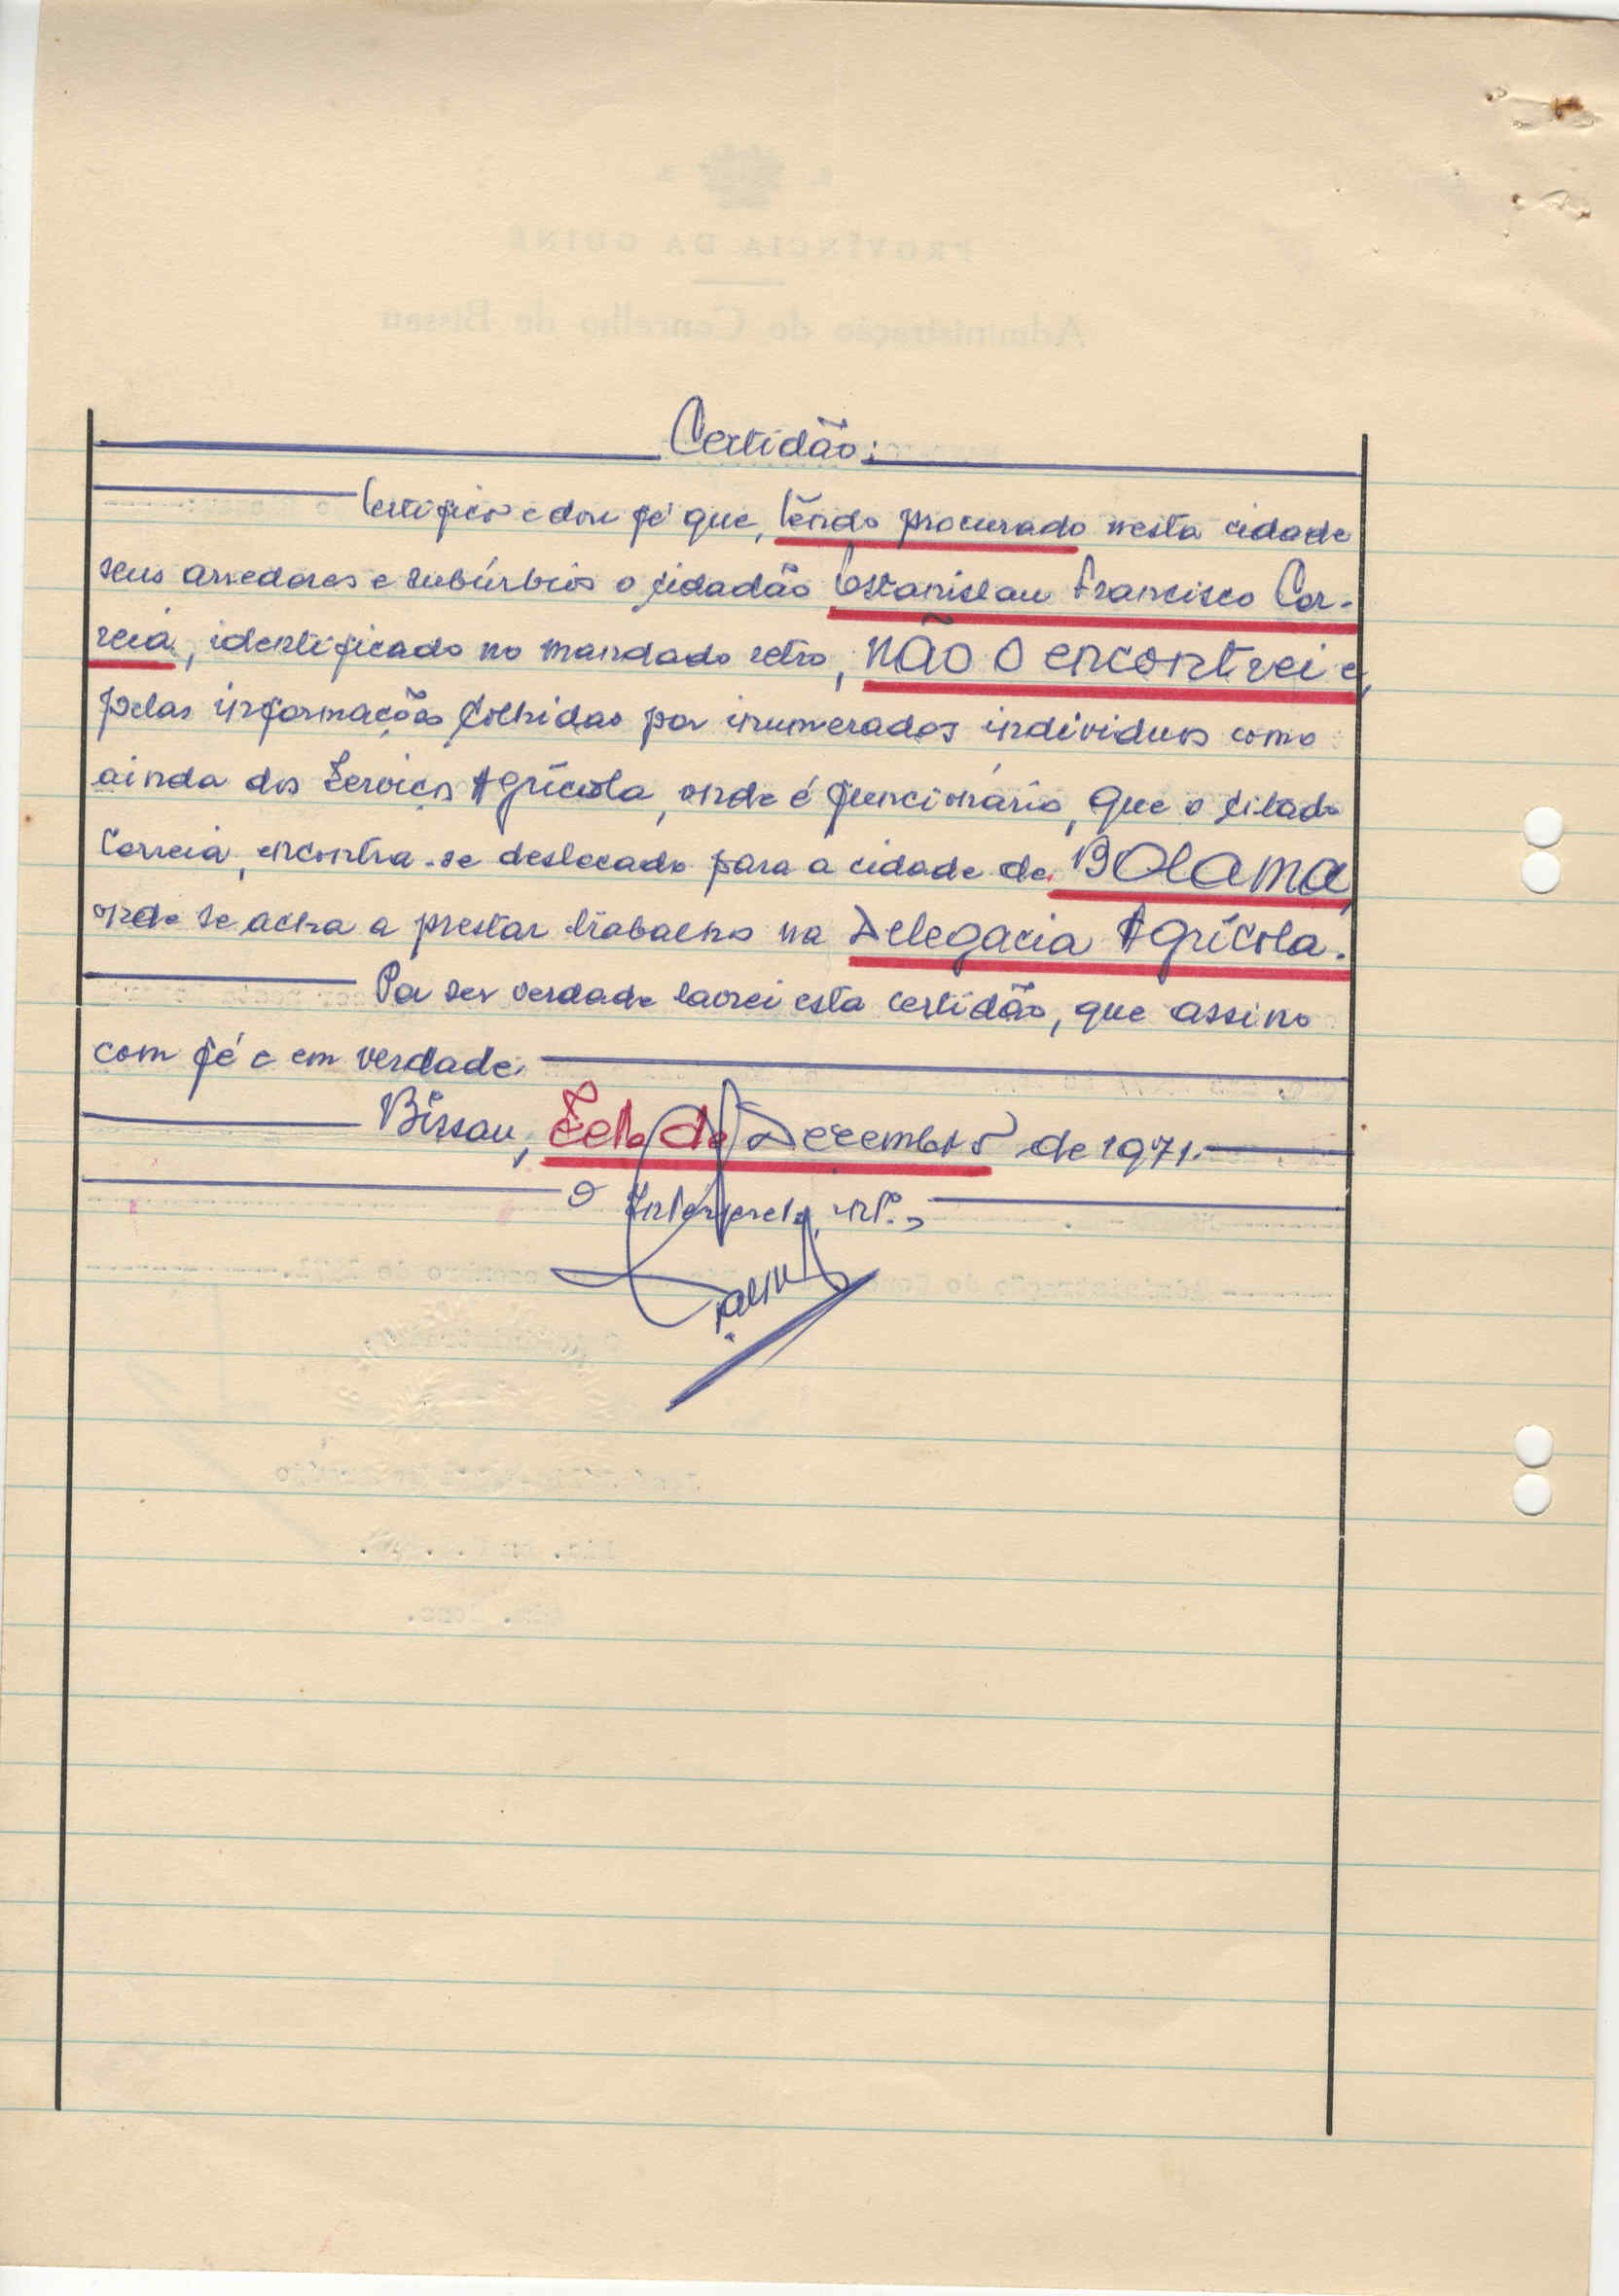 Certidão:
Certifico e dou fé que, tendo procurado nesta cidade
seus arredores e subúrbios o cidadão Estanislau Francisco Cor-
reia, identificado no mandado retro, não o encontrei e,
pelas informações colhidas por inumerados individuos como
ainda dos Serviços Agrícola, onde é funcionário, que o citado
Correia, encontra-se deslocado para a cidade de BOlama,
onde se acha a prestar trabalho na Delegacia Agrícola.
Por ser verdade lavrei esta certidão, que assino
com fé e em verdade.
Bissau, Sete de Dezembro de 1971.
O Intérprete, intº.,